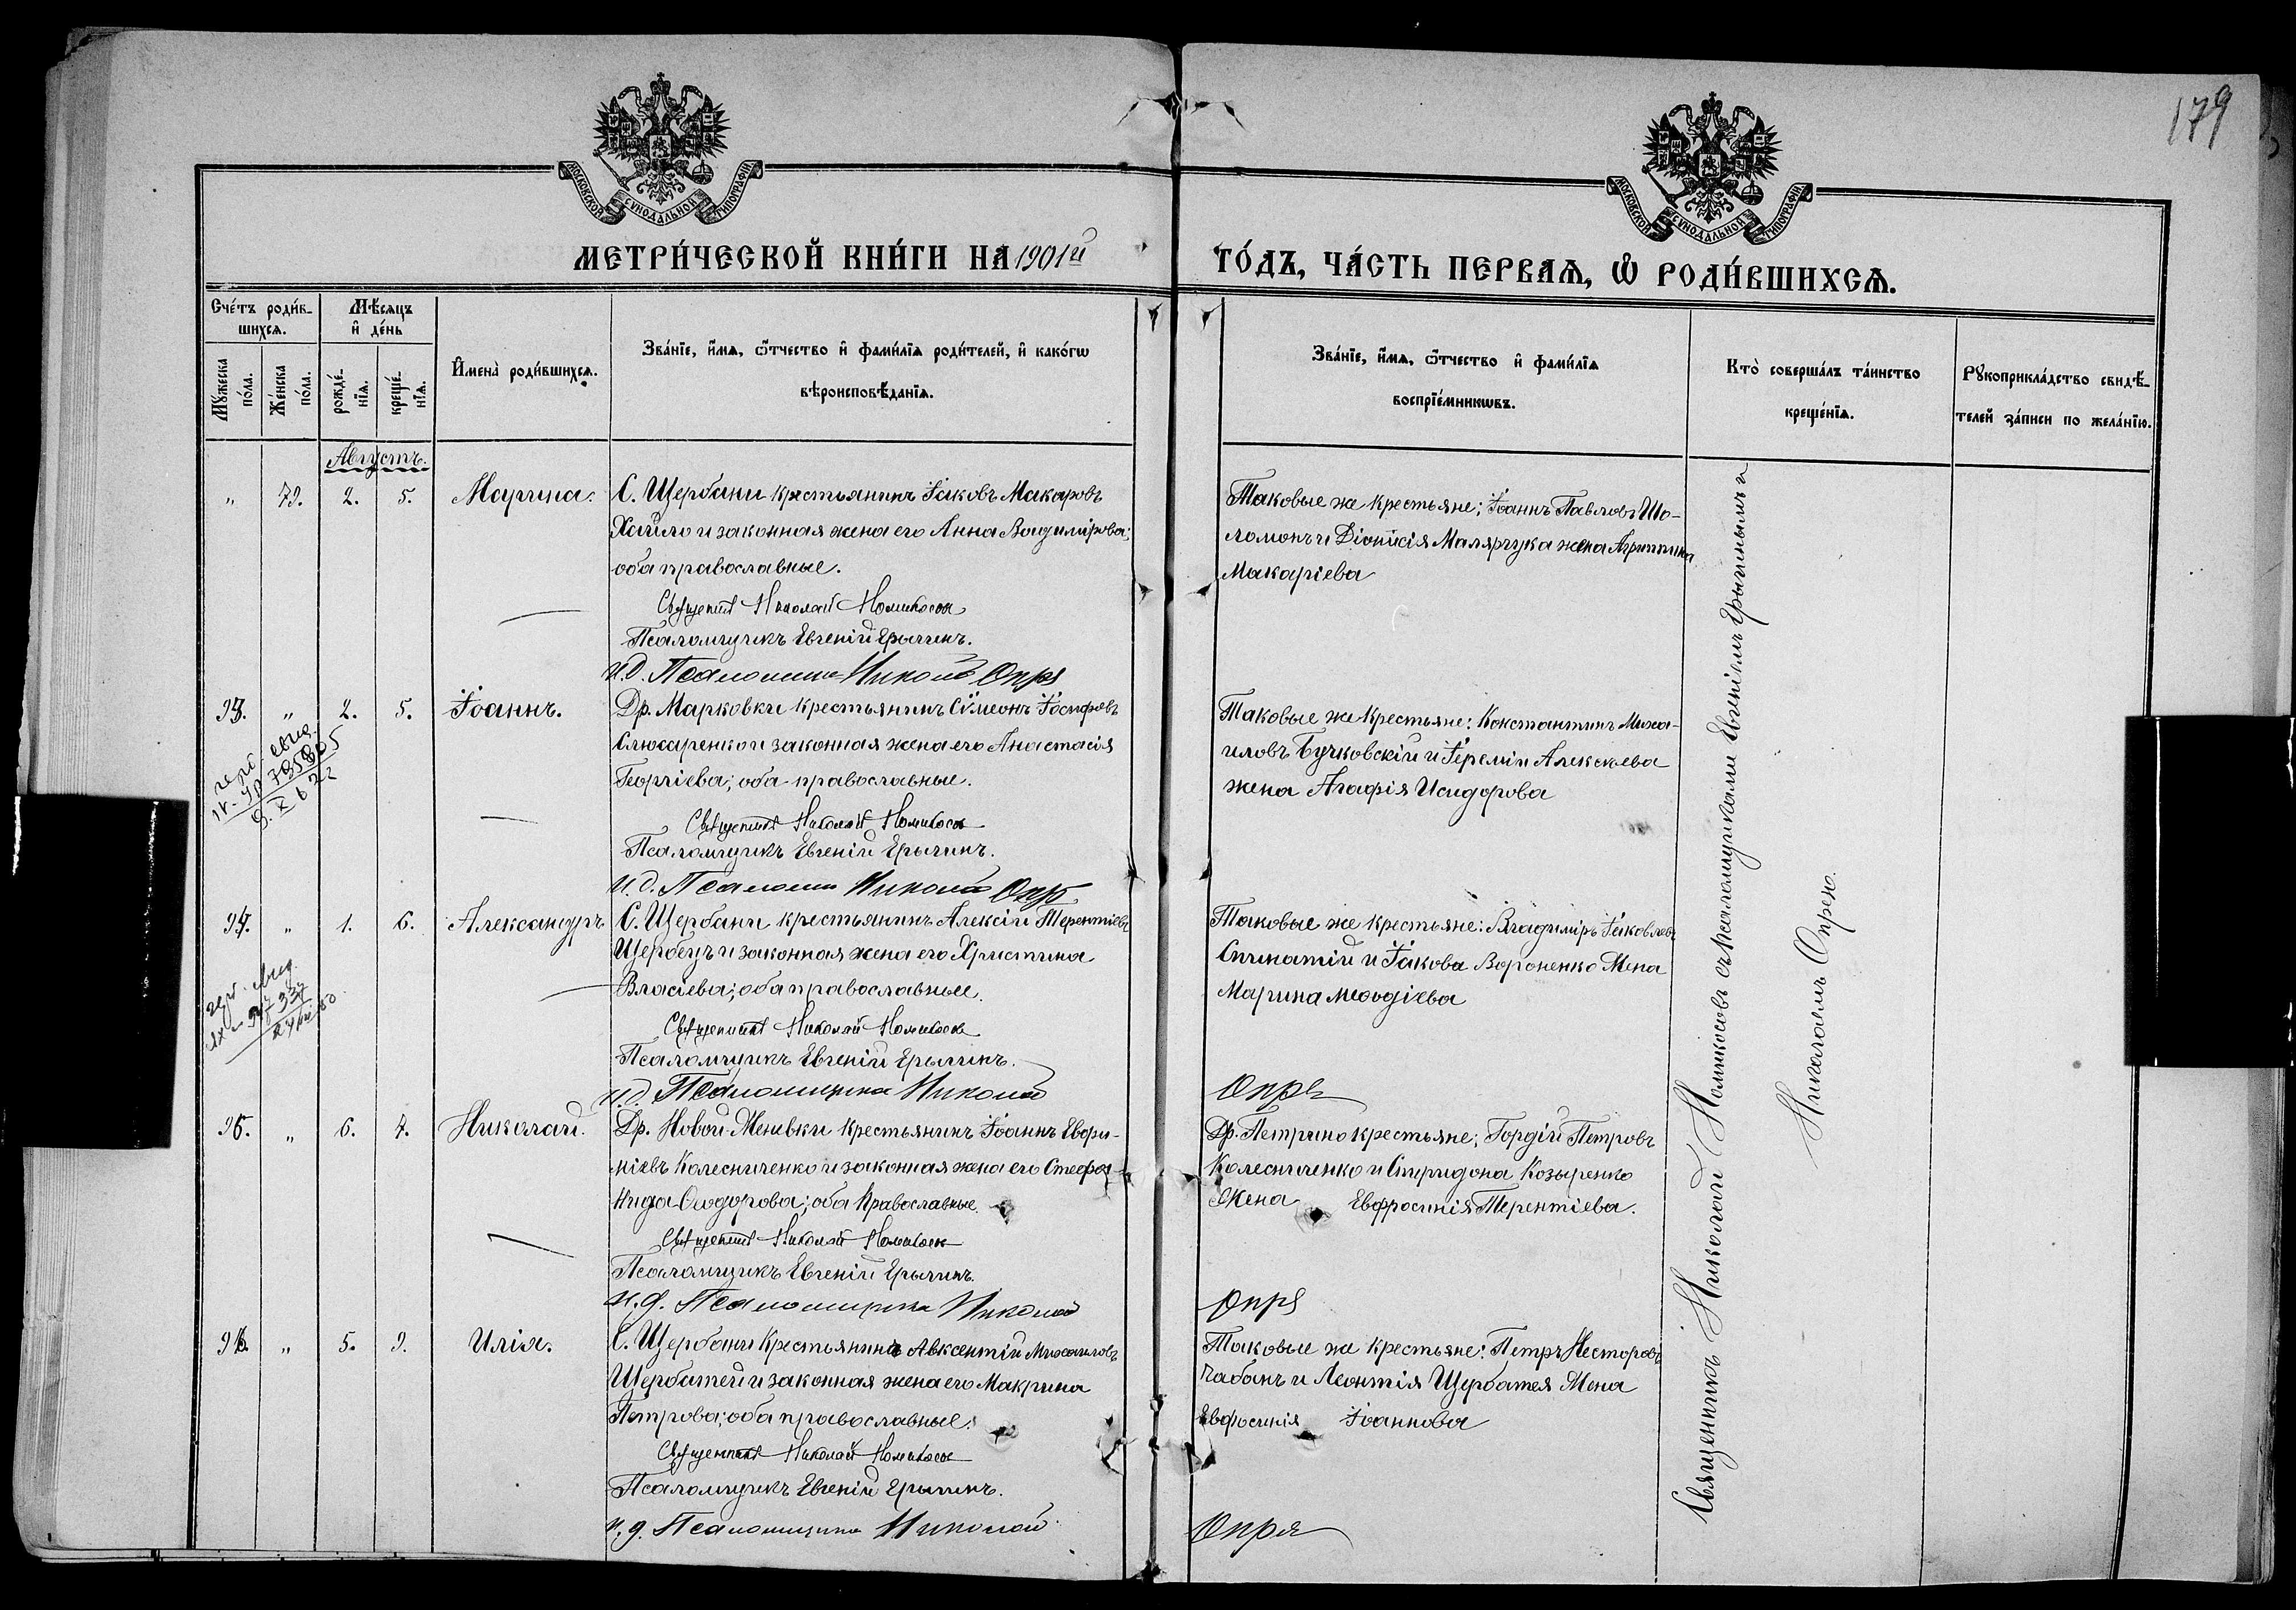 179
МОСКОВСКОЙ СѴНОДАЛЬНОЙ ТИПОГРАФІИ
МОСКОВСКОЙ СѴНОДАЛЬНОЙ ТИПОГРАФІИ
МЕТРИ́ЧЕСКОЙ КНИ́ГИ НА 1901й
ГО́ДЪ, ЧА́СТЬ ПЕРВАѦ, Ѡ РОДИ́ВШИХСѦ.
Сче́тъ роди́в-
шихсѧ.
Мѣ́сѧцъ
и҆ де́нь
Мꙋ́жеска
по́ла.
Же́нска
по́ла.
рожде́-
нїѧ.
креще́-
нїѧ.
И҆мена̀ роди́вшихсѧ.
Зва́нїе, и҆́мѧ, ѻ҆́тчество и҆ фами́лїѧ роди́телей, и҆ како́гѡ
вѣроисповѣ́данїѧ.
Зва́нїе, и҆́мѧ, ѻ҆́тчество и҆ фами́лїѧ
воспрїе́мникѡвъ.
Кто̀ соверша́лъ та́инство
креще́нїѧ.
Рꙋкоприкла́дство свидѣ́-
телей за́писи по жела́нїю.
Августъ.
„ 79. 2. 5. Марина.
С. Щербани крестьянинъ Іаковъ Макаровъ
Хайло и законная жена его Анна Владимірова;
оба православные.
Священникъ Николай Номикосов
Псаломщикъ Евгеній Ерыгинъ.
и.д. Псаломщика Николай Опря
Таковые же крестьяне: Іоаннъ Павловъ Шо-
ломонъ и Діонисія Малярчука жена Агриппина
Макаріева
93. „ 2. 5. Іоаннъ.
Др. Марковки крестьянинъ Сѵмеонъ Іосифовъ
Слюсаренко и законная жена его Анастасія
Георгіева; оба православные.
Священникъ Николай Номикосов
Псаломщикъ Евгеній Ерыгинъ.
и.д. Псаломщ Николай Опря
Таковые же крестьяне: Константинъ Миха-
иловъ Бучковскій и Іереміи Алексѣева
жена Агафія Исидорова
94. „ 1. 6. Александръ
С. Щербани крестьянинъ Алексій Терентіевъ
Щербецъ и законная жена его Христина
Власіева; оба православные.
Священникъ Николай Номикосов
Псаломщикъ Евгеній Ерыгинъ.
и.д. Псаломщика Николай
Опря
Таковые же крестьяне: Владиміръ Іаковлевъ
Спинатій и Іакова Вороненко Жена
Марина Меѳодіева
95. „ 6. 7. Николай.
Др. Новой-Меневки крестьянинъ Іоаннъ Евфи-
міевъ Колесниченко и законная жена его Стефа-
нида Ѳеодорова; оба православные.
Священникъ Николай Номикосов
Псаломщикъ Евгеній Ерыгинъ.
и.д. Псаломщика Николай
Опря
Др. Петрино крестьяне: Гордій Петровъ
Колесниченко и Спиридона Козыренко
Жена Евфросинія Терентіева.
96. „ 5. 9. Илія.
С. Щербани крестьянинъ Авксентій Михаиловъ
Щербатей и законная жена его Макрина
Петрова; оба православные.
Священникъ Николай Номикосов
Псаломщикъ Евгеній Ерыгинъ.
и.д. Псаломщика Николай
Опря
Таковые же крестьяне: Петръ Несторовъ
Чабанъ и Леонтія Щербатея Жена
Евфросинія Іоаннова
Священникъ Николай Номикосовъ съ псаломщиками Евгеніемъ Ерыгинымъ и
Николаемъ Опрею.